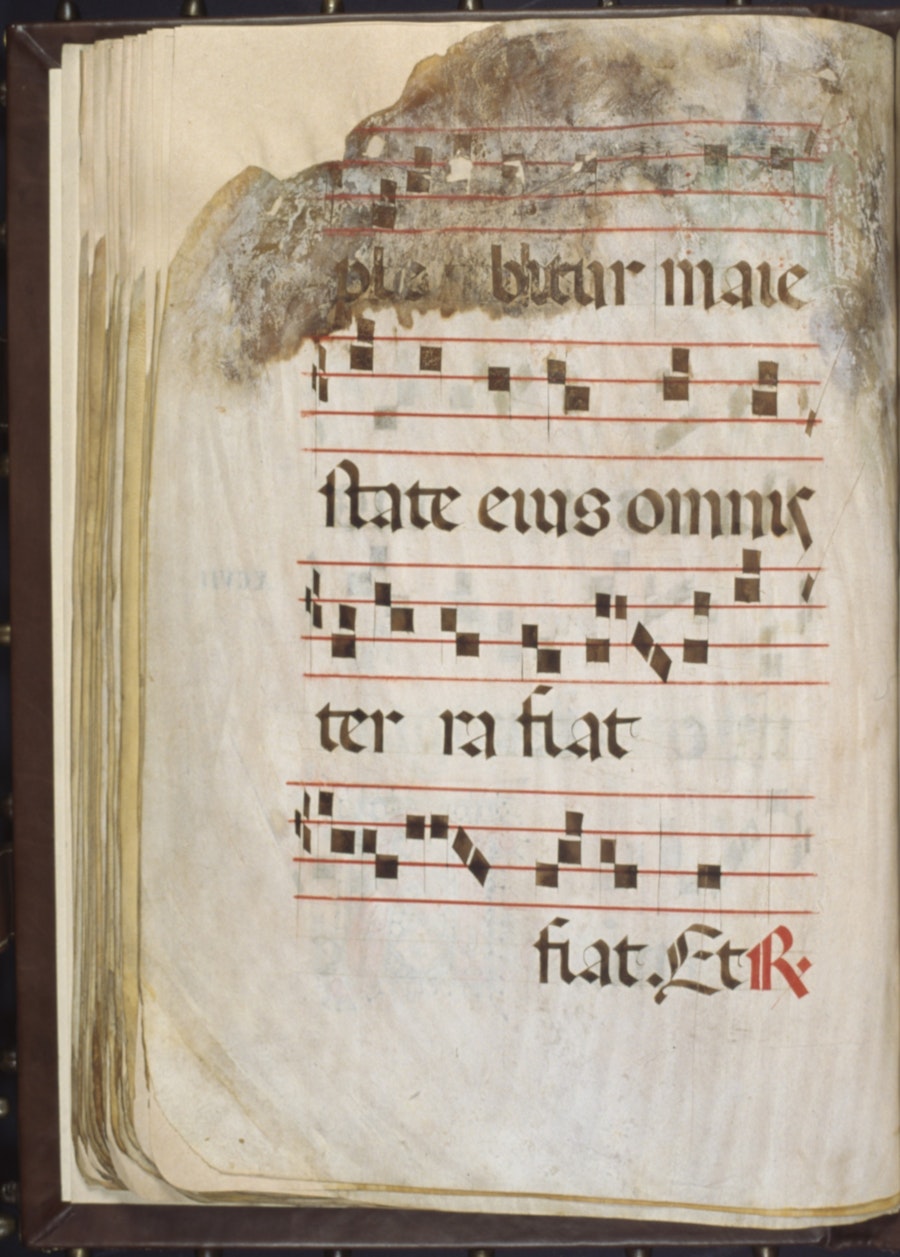 ple bitur maie
state eius omnis
ter ra fiat
fiat. Et R.